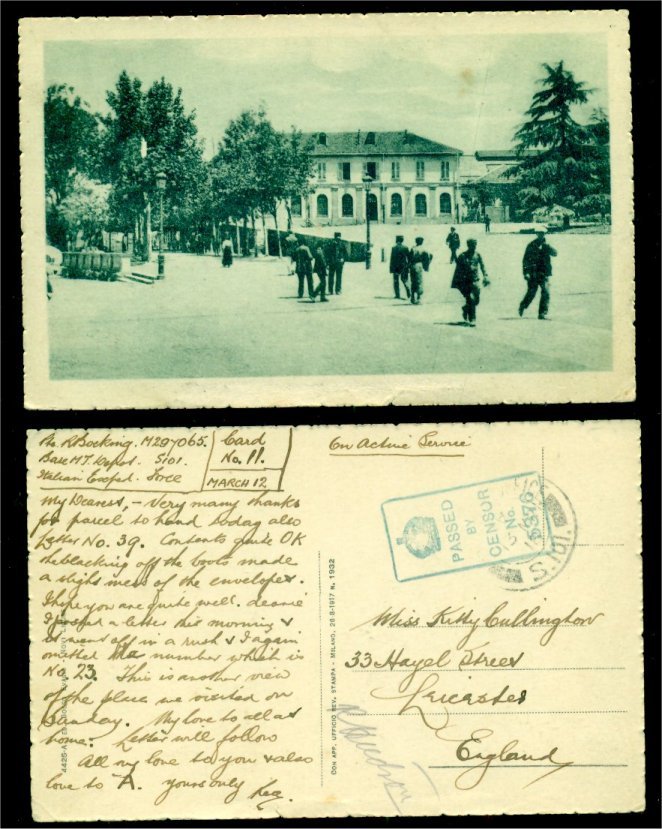 Pte. R Bocking. M297065.
Base M.T. Depot. S101.
Italian Exped. Force
Card
No. 11.
MARCH 12
On Active Service
My Dearest, - Very many thanks
for parcel to hand today also
Letter No. 39. Contents quite OK
the blacking off the boots made
a slight mess of the envelopes.
I hope you are quite well, dearie
I posted a letter this morning &
it went off in a rush & I again
omitted the number which is
No 23. This is another view
of the place we visited on
Sunday. My love to all at
home. Letter will follow
All my love to you & also
love to A. yours only Reg.
DON APP. UFFICIO REV. STAMPA - MILANO, 26-8-1917 N. 1932
PASSED
BY
CENSOR
No.
5376
S.101.
Miss Kitty Cullington
33 Hazel Street
Leicester
England
R Hudson